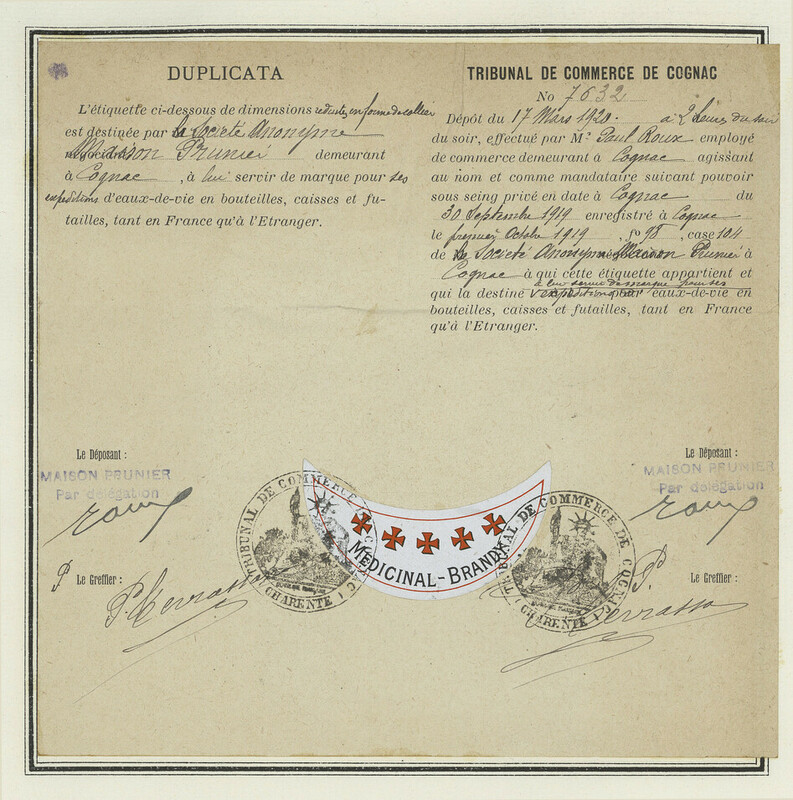 DUPLICATA
L'étiquette ci-dessous de dimensions réduites en forme de collier
est destinée par la Société Anonyme
négociant Maison Prunier demeurant
à Cognac, à lui servir de marque pour ses
expéditions d'eaux-de-vie en bouteilles, caisses et fu-
tailles, tant en France qu'à l'Etranger.
TRIBUNAL DE COMMERCE DE COGNAC
No 7632
Dépôt du 17 Mars 1920. à 2 heures du soir
du soir, effectué par Mr Paul Roux employé
de commerce demeurant à Cognac agissant
au nom et comme mandataire suivant pouvoir
sous seing privé en date à Cognac du
30 Septembre 1919 enregistré à Cognac
le premier Octobre 1919, fo 98, case 104
de la Société Anonyme Maison Prunier à
Cognac à qui cette étiquette appartient et
à leur servir de marque pour ses
qui la destine expéditions eaux-de-vie en
bouteilles, caisses et futailles, tant en France
qu'à l'Etranger.
Le Déposant :
MAISON PRUNIER
Par délégation
Roux
P. Le Greffier :
P. Terrasson
TRIBUNAL DE COMMERCE DE COGNAC
CHARENTE
MEDICINAL-BRANDY
TRIBUNAL DE COMMERCE DE COGNAC
CHARENTE
Le Déposant :
MAISON PRUNIER
Par délégation
Roux
P. Le Greffier :
Terrasson